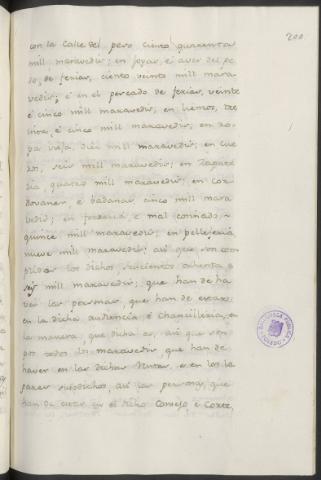 200
con la Calle del pero ciento quarenta
mill maravedis; en joyas, e aver del pe
so, de ferias, ciento veinte mill mara
vedis; é en el pescado de ferias, veinte
é cinco mill maravedis; en lienzos, tre
inta, é cinco mill maravedis; en ro
pa vieja, diez mill maravedis; en cue
ros, seis mill maravedis; en Zapate
ria quatro mill maravedis; en cor
dovanes, é badanas, cinco mill mara
vedis; en freneria é mal cocinado,
quince mill maravedis; en pelleteria
nueve mill maravedis; así que son com
plidos los dichos seiscientos ochenta e
seis mill maravedis; que han de ha
ver las personas, que han de estar
en la dicha audiencia, é Chancilleria, en
la manera, que dicha es, así que son
por todos los maravedis, que han de
haver en las dichas Rentas, e en los lo
gares susodichos, así las personas, que
han de estar en el dicho Consejo é Corte,
BIBLIOTECA PUBLICA
TOLEDO